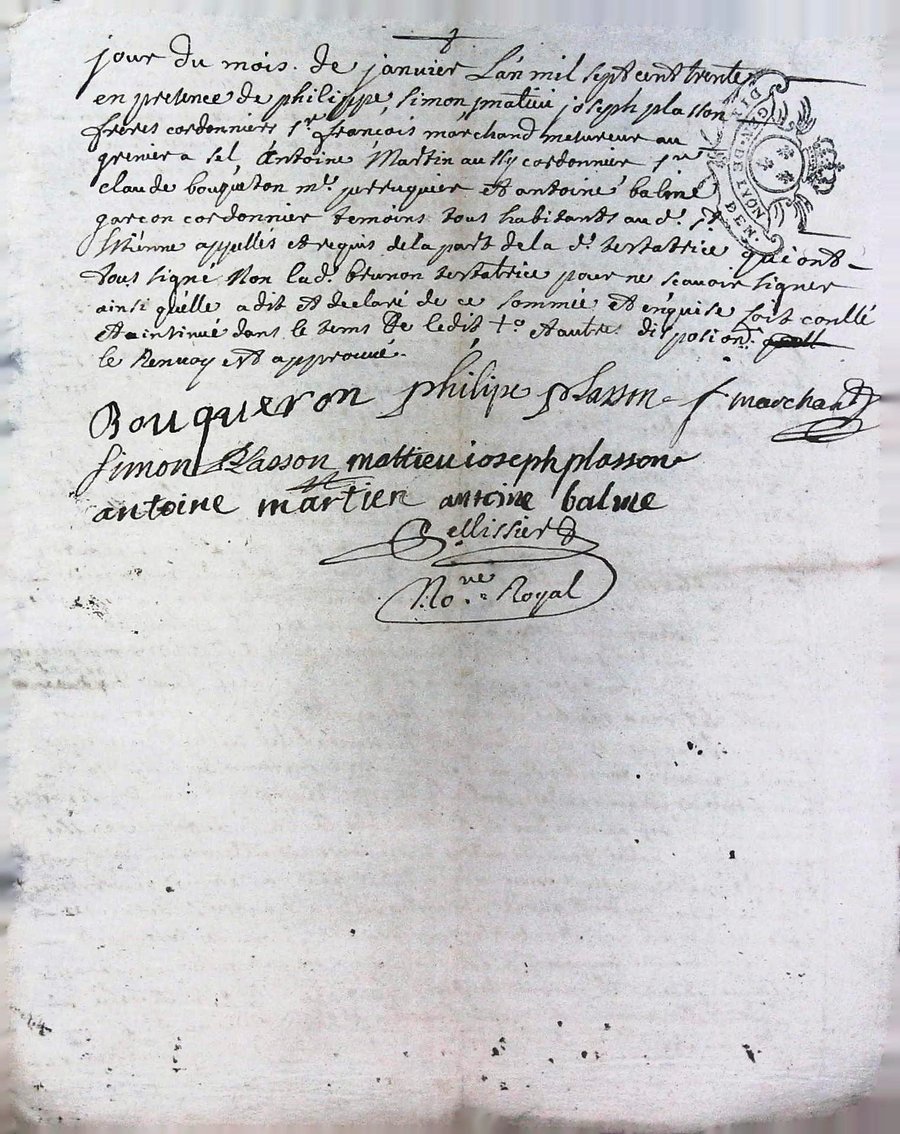 jour du mois de janvier Lan mil sept cent trente
en presence de philippe, simon, matieu joseph plasson
freres cordonniers sr. françois marchand mesureur au
grenier a sel, Antoine Martin aussy cordonnier, sr.
claude bouqueron me. perruquier et antoine balme
garcon cordonnier temoins tous habitants aud. st.
Etienne appellés et requis de la part de la d. testatrice qui ont
tous signé Non lad. brunon testatrice pour ne scavoir signer
ainsi qu'elle a dit et declaré de ce sommée et enquise soit conllé
et aintinué dans le tems de ledit to. et autres disposion.
le Renvoy est approuvé.
GEN. DE LYON
DEN.
Bouqueron philipe plasson f marchand
simon plasson mattieu ioseph plasson
antoine martien antoine balme
Pellissier
No.re Royal